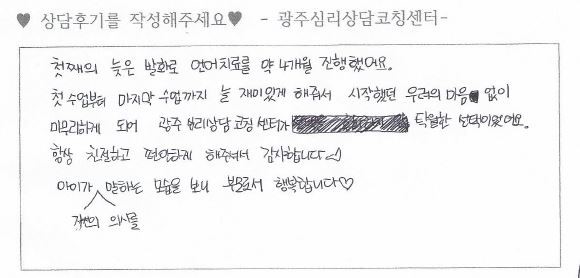 ♥ 상담후기를 작성해주세요♥ - 광주심리상담코칭센터-
첫째의 늦은 발화로 언어치료를 약 4개월 진행했어요.
첫 수업부터 마지막 수업까지 늘 재미있게 해주셔서 시작했던 우려의 마음 없이
마무리하게 되어 광주심리상담코칭센터가 탁월한 선택이었어요.
항상 친절하고 편안하게 해주셔서 감사합니다♡
아이가 자신의 의사를 말하는 모습을 보니 부모로서 행복합니다♡